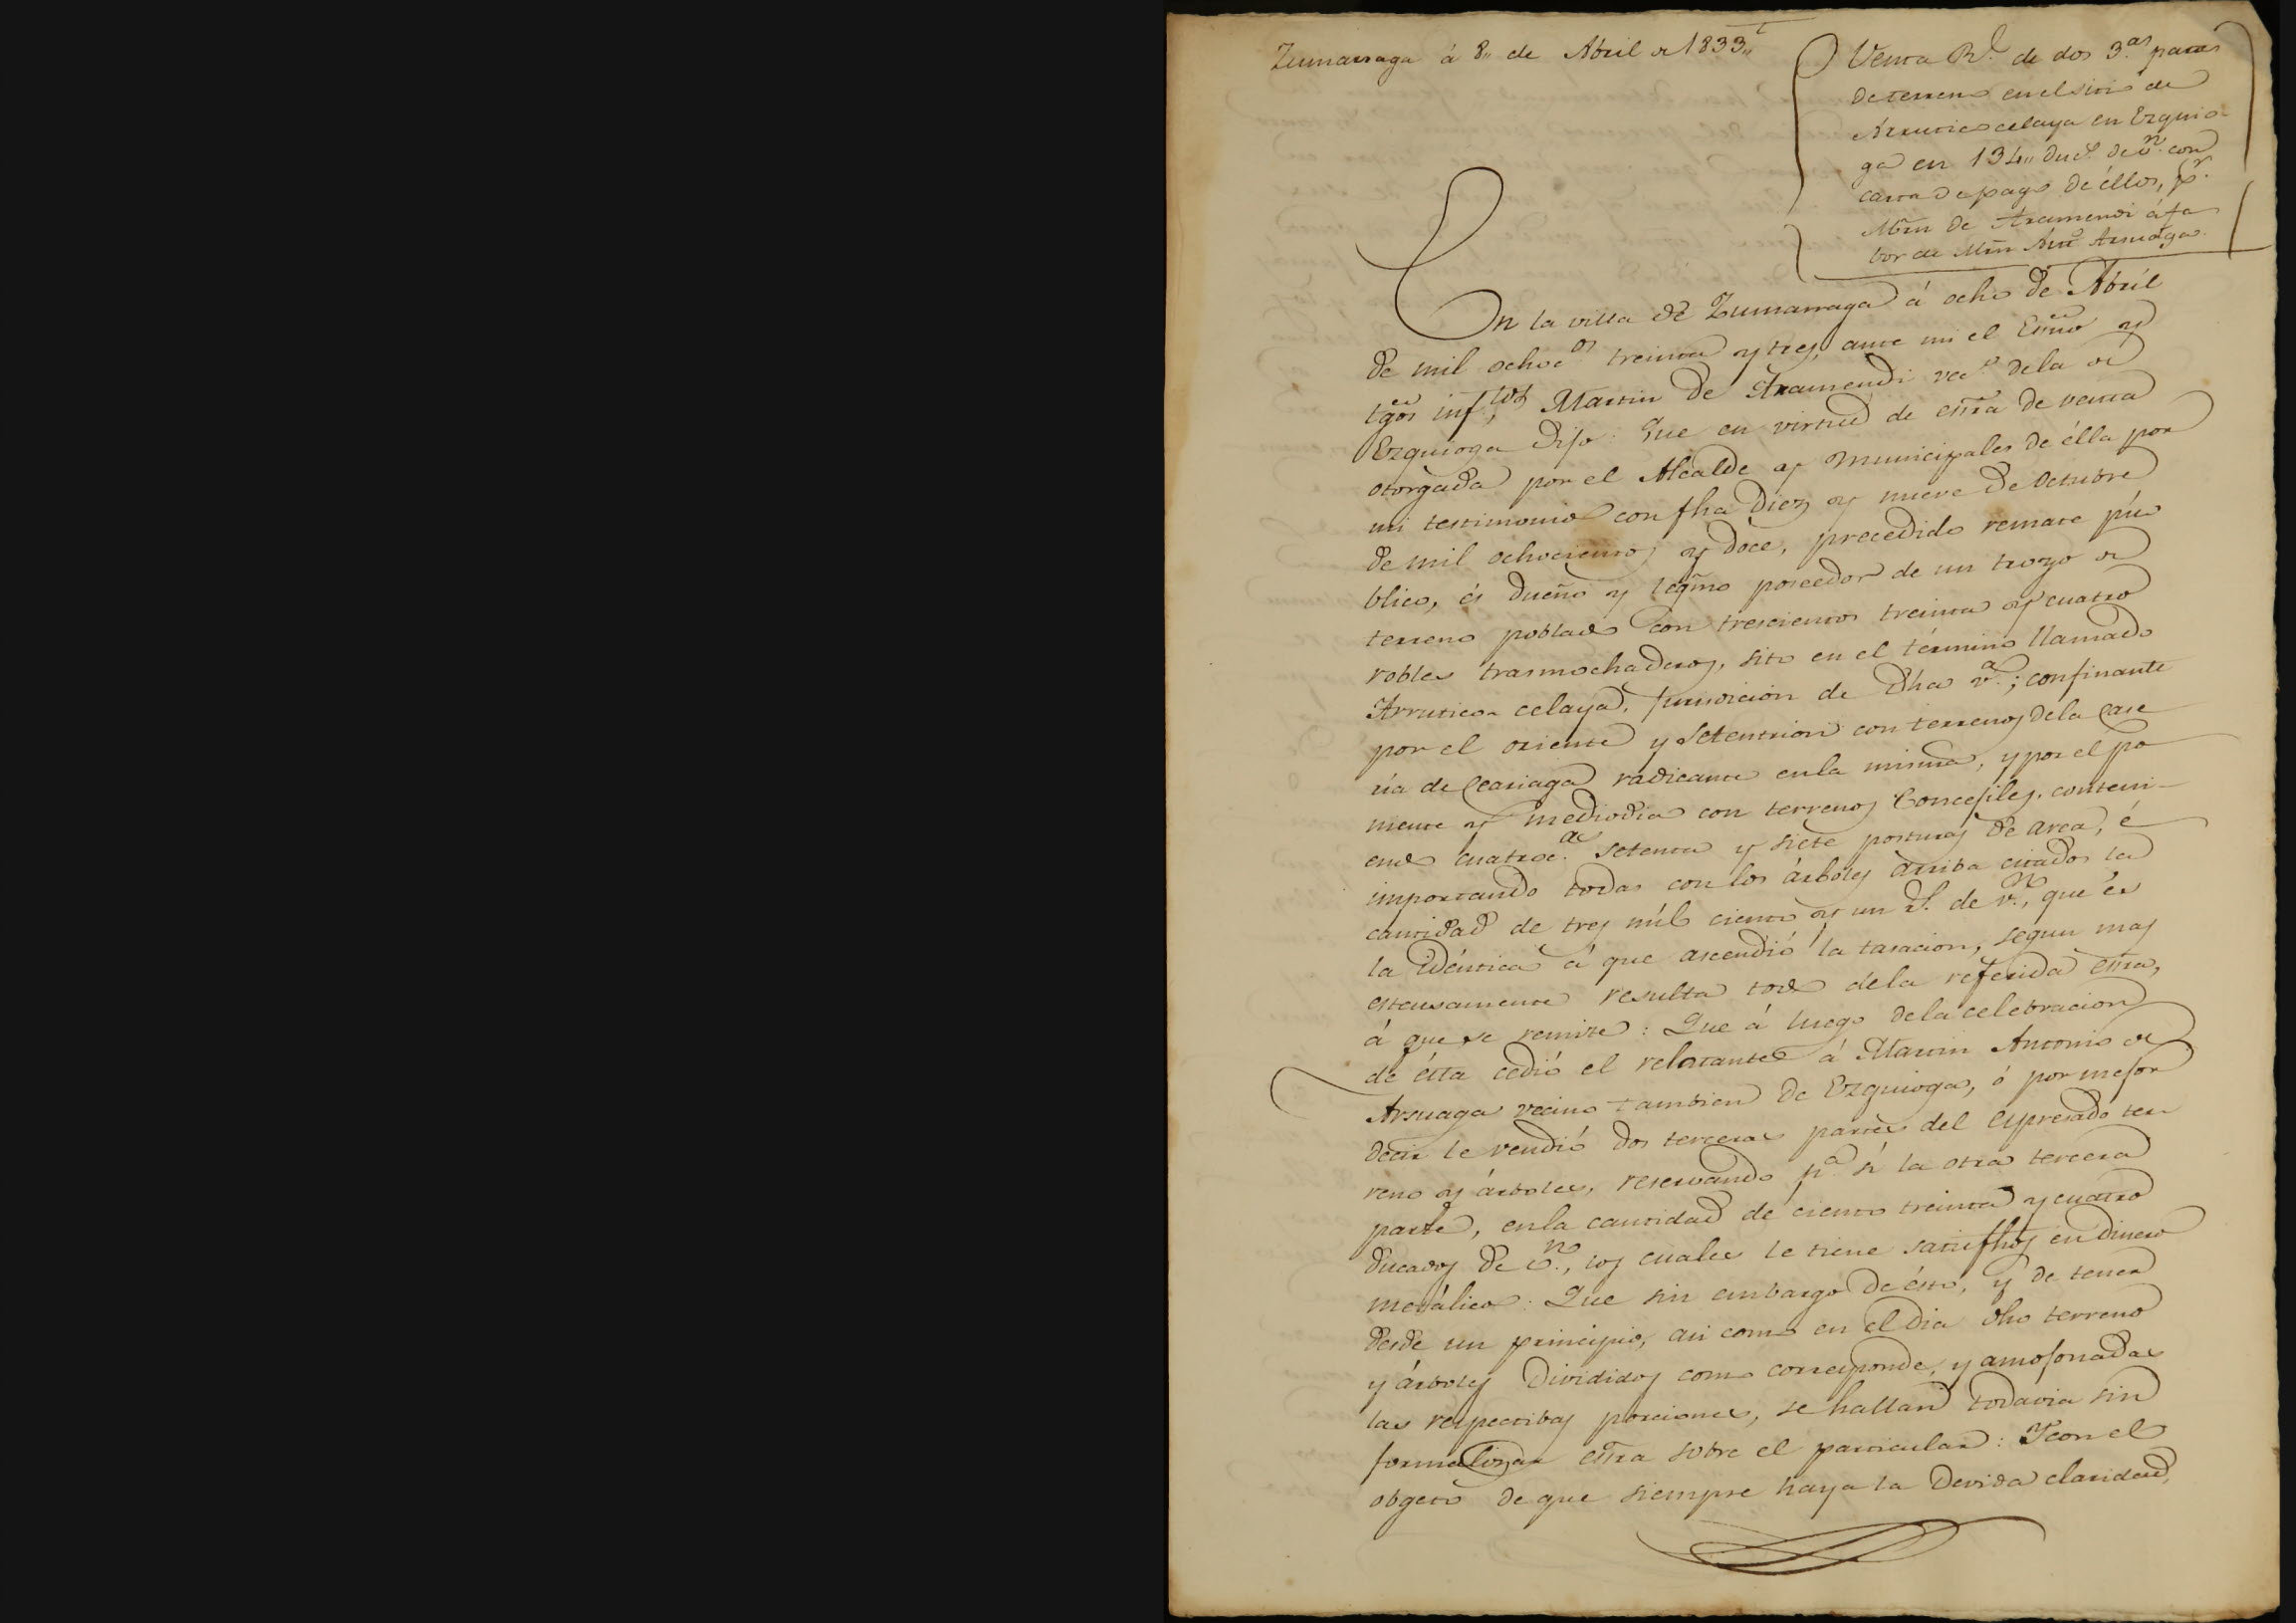 Zumarraga á 8,, de Abril de 1833,,
Venta Rl. de dos 3.as partes
de terreno en el sitio de
Arrutico celaya en Ezquio-
ga en 134,, duc.s de v.n con
carta de pago de éllos, p.r
Mrn de Aramendi á fa
bor de Mrn Ant.o Arsuaga.
En la villa de Zumarraga á ocho de Abril
de mil ochoc.os treinta y tres, ante mi el Essno y
tgos inf.tos Martin de Aramendi vec.o de la de
Ezquioga Dijo: Que en virtud de essra de venta
otorgada por el Alcalde y Municipales de élla por
mi testimonio con fha diez y nueve de Octubre
de mil ochocientos y doce, precedido remate pú-
blico, és dueño y legmo poseedor de un trozo de
terreno poblado con trescientos treinta y cuatro
robles trasmochaderos, sito en el término llamado
Arrutico celaya, jurisdicion de dha v.a; confinante
por el oriente y Setentrion con terrenos de la case
ria de Ceariaga radicante en la misma, y por el po
niente y mediodia con terrenos Concejiles, conteni-
endo cuatroc.as setenta y siete posturas de area, é
importando todas con los árboles arriba citados la
cantidad de tres mil ciento y un rs. de v.n, que és
la idéntica á que ascendió la tasacion, segun mas
estensamente resulta todo de la referida essra,
á que se remite: Que á luego de la celebracion
de ésta cedió el relatante á Martin Antonio de
Arsuaga vecino tambien de Ezquioga, ó por mejor
decir le vendió dos terceras partes del espresado ter
reno y árboles, reservando p.a sí la otra tercera
parte, en la cantidad de ciento treinta y cuatro
ducados de v.n, los cuales le tiene satisfhos en dinero
metálico: Que sin embargo de ésto, y de tener
desde un principio, asi como en el dia dho terreno
y árboles divididos como corresponde, y amojonadas
las respectibas porciones, se hallan todavia sin
formalizar essra sobre el particular: Y con el
objeto de que siempre haya la devida claridad,